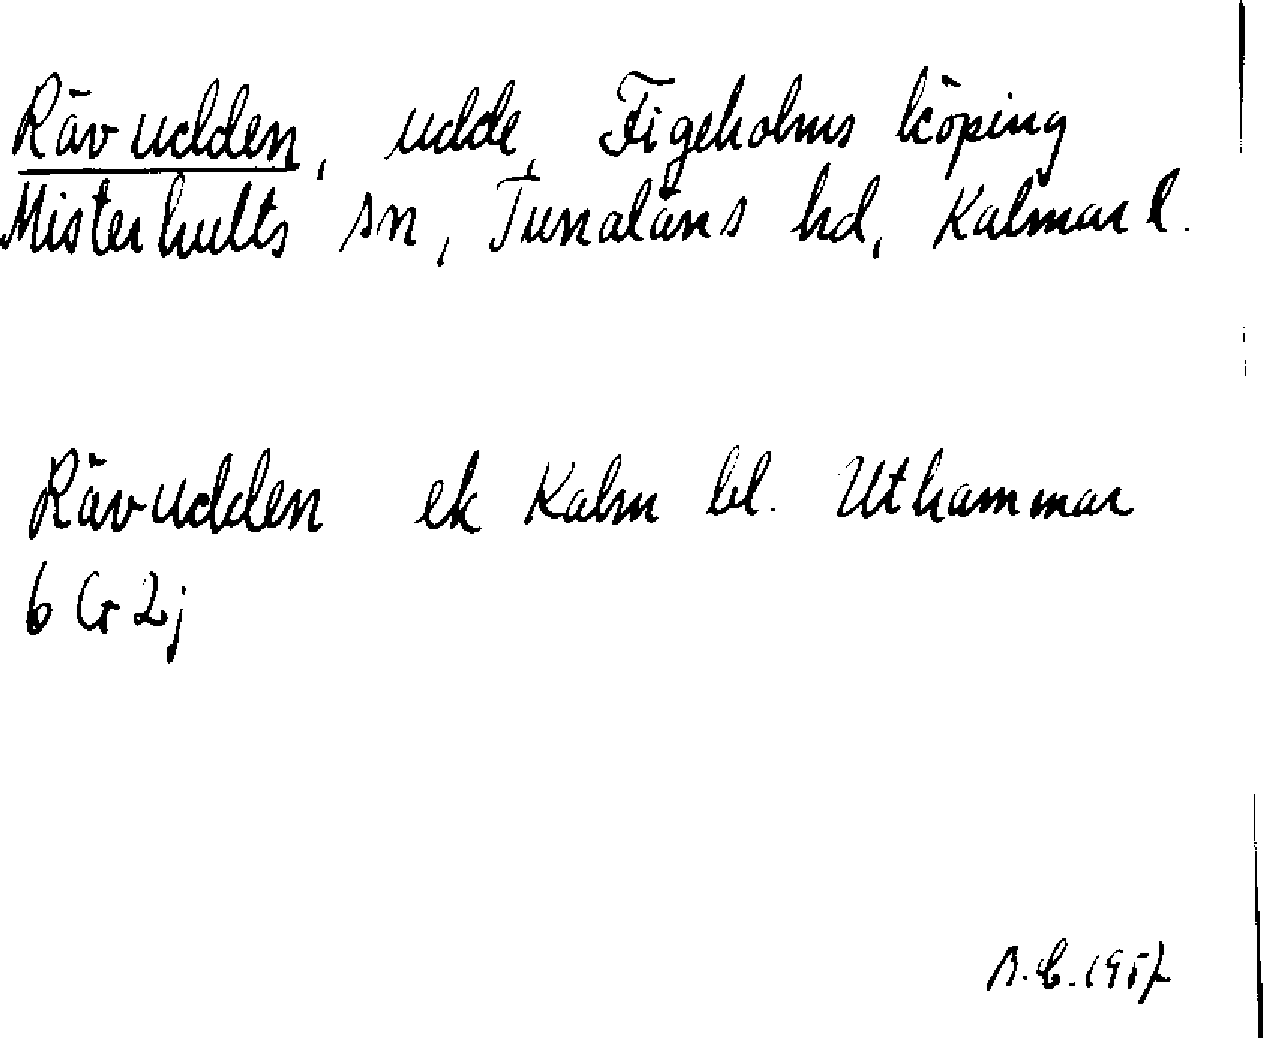 Rävudden, udde, Figeholms köping
Misterhults sn, Tunaläns hd, Kalmar l.
Rävudden ek Kalm bl. Uthammar
6 G 2j
B.E. 1957